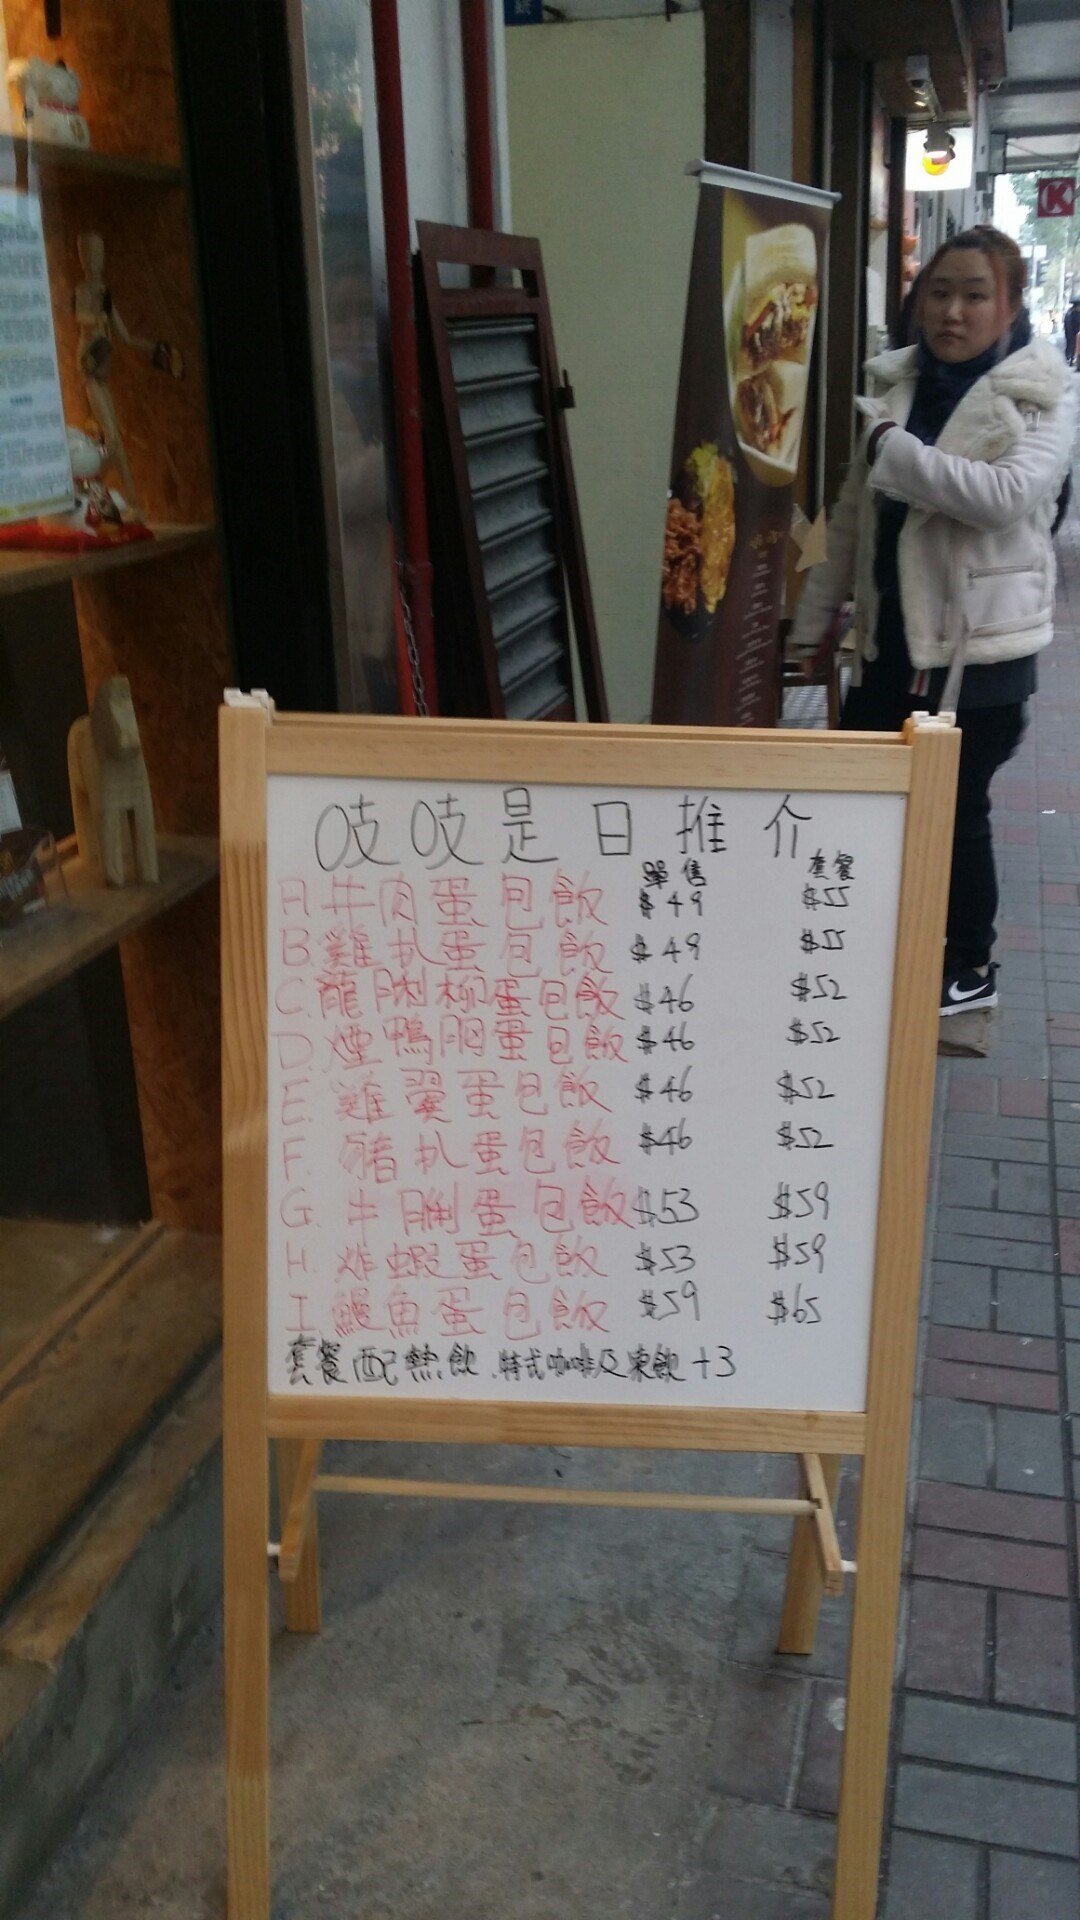 吱吱是日推介
單售 套餐
A.牛肉蛋包飯 $49 $55
B.雞扒蛋包飯 $49 $55
C.龍脷柳蛋包飯 $46 $52
D.煙鴨胸蛋包飯 $46 $52
E.雞翼蛋包飯 $46 $52
F.豬扒蛋包飯 $46 $52
G.牛脷蛋包飯 $53 $59
H.炸蝦蛋包飯 $53 $59
I.鰻魚蛋包飯 $59 $65
套餐配熱飲.特式咖啡及凍飲+3
K